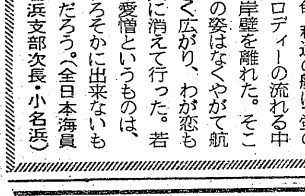 の船は蛍の
ロディーの流れる中
岸壁を離れた。そこ
の姿はなくやがて航
く広がり、わが恋も
に消えて行った。若
愛憎というものは、
ろそかに出来ないも
だろう。(全日本海員
浜支部次長・小名浜)